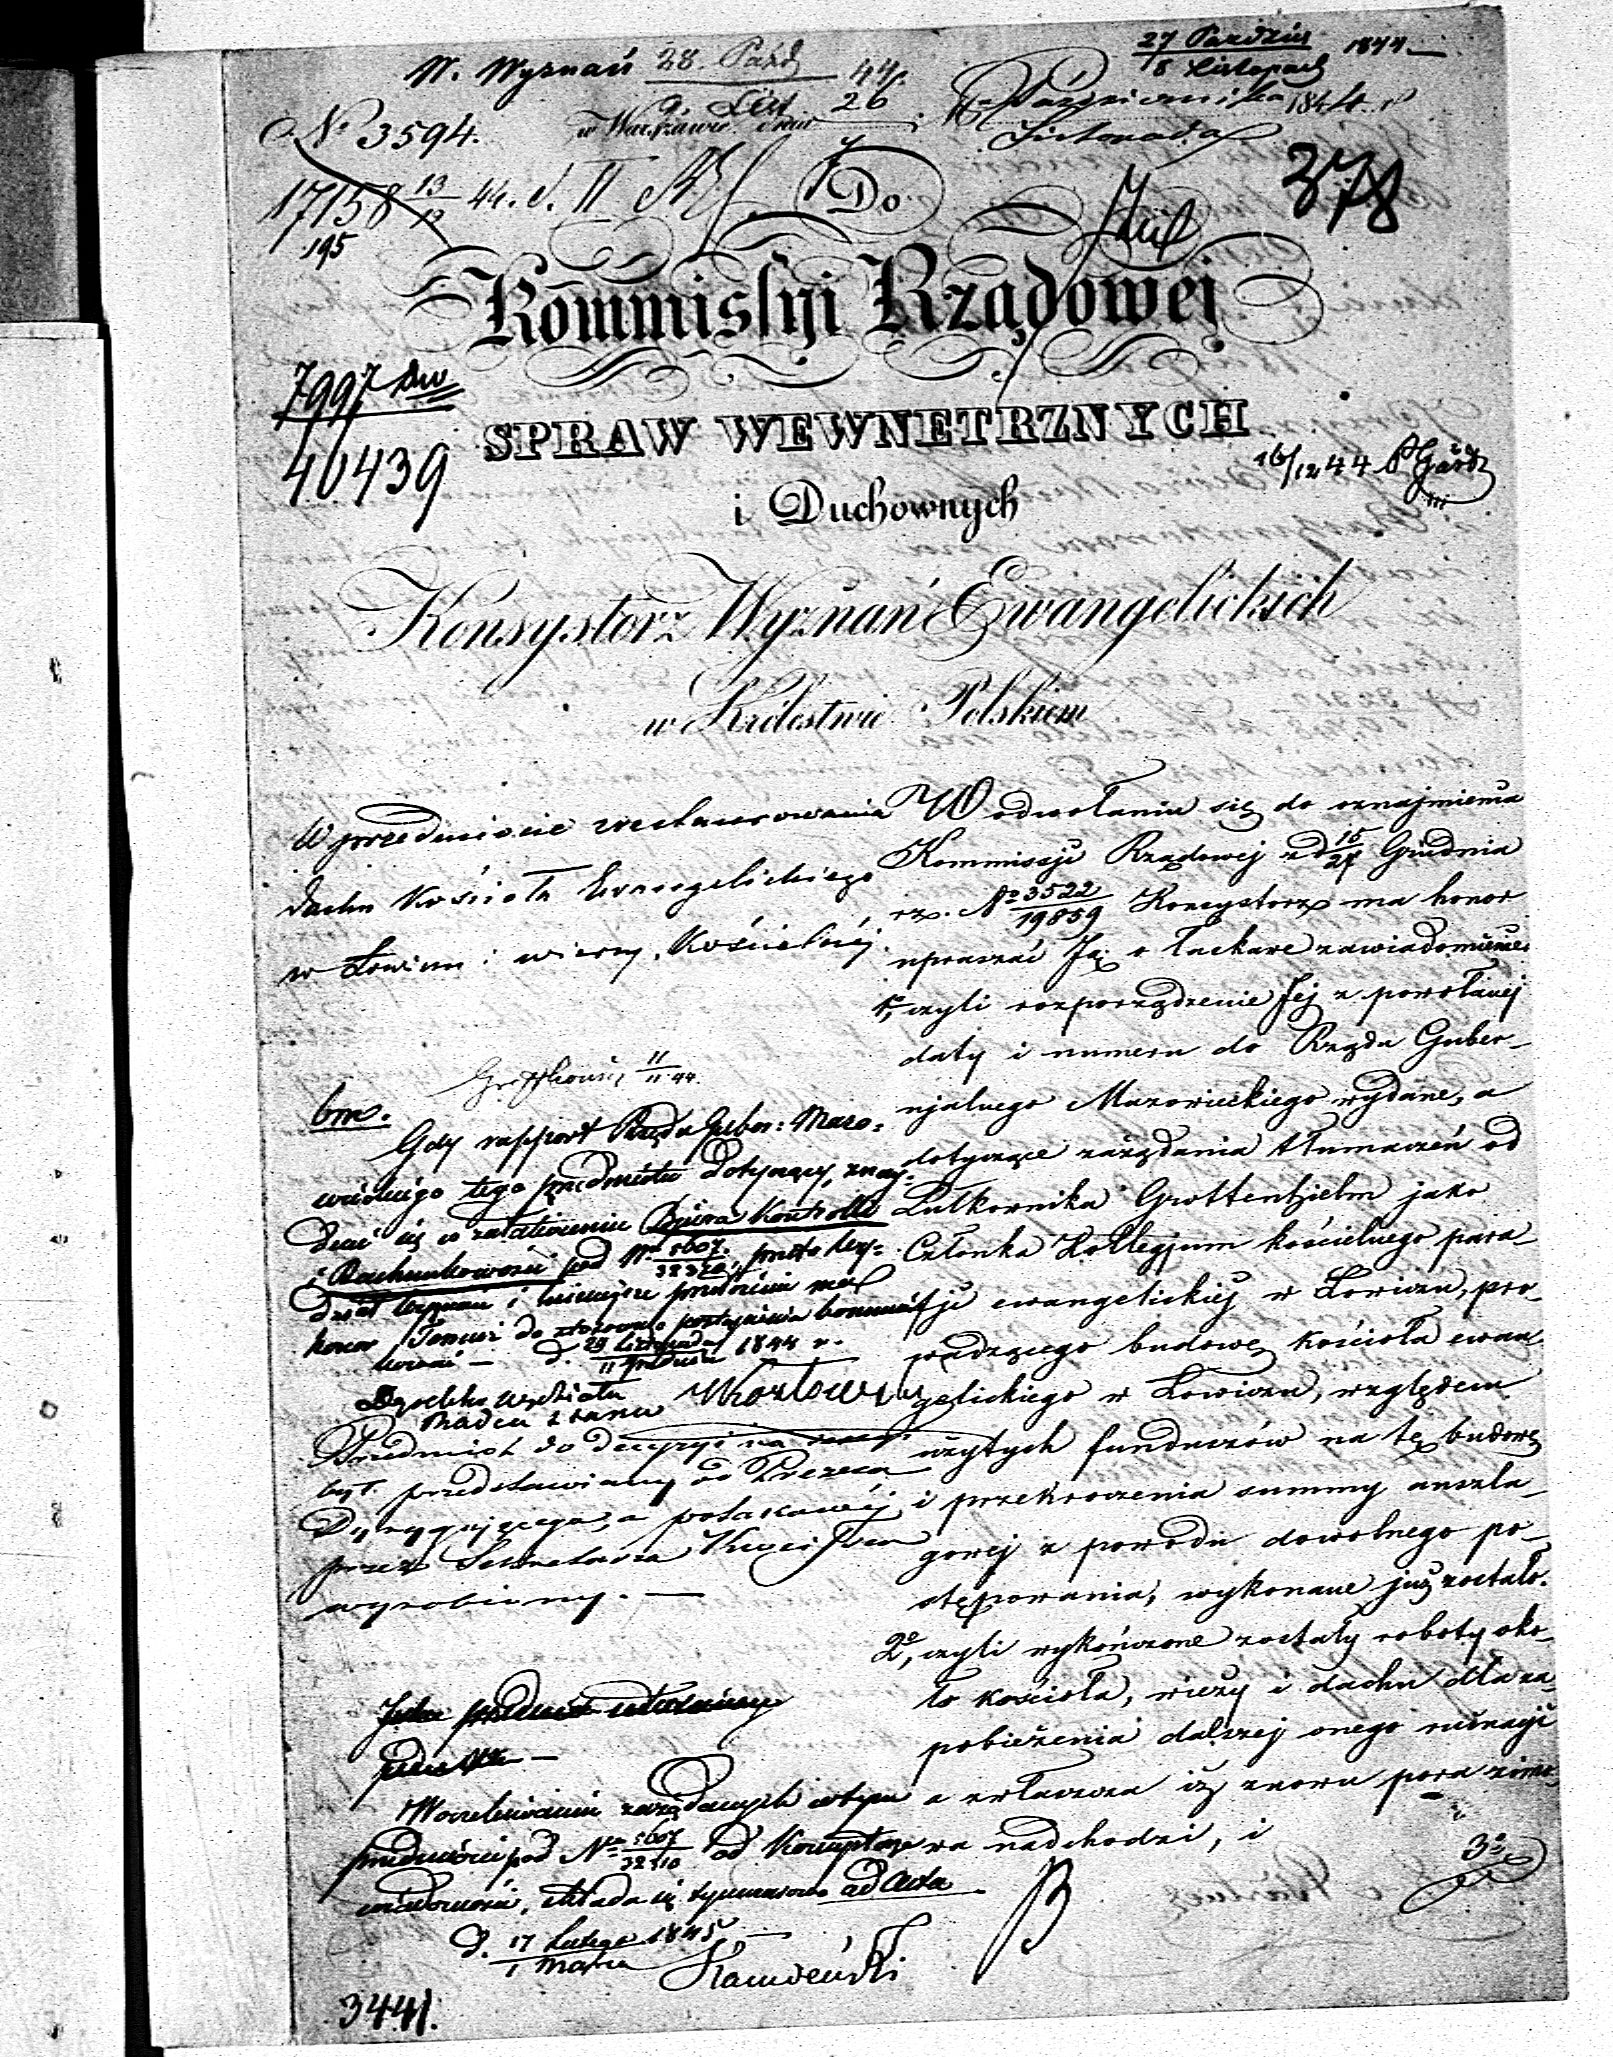 W. Wyznań 28. Paźd 44.
9. List
27 Paździer 1844
8 Listopad
No 3594.
w Warszawie dnia 26 Października 1844 r
7 Listopada
17158 13/12 44. d. II
195
Do
378
Kommissyi Rządowej
7997
40439
SPRAW WEWNETRZNYCH
16/12 44
i Duchownych
Konsystorz Wyznań Ewangelickich
w Królestwie Polskiem
W przedmiocie zrestaurowania
dachu Kościoła Ewangelickiego
w Łowiczu i wieży Kościelnéj.
W odwołaniu się do oznajmienia
Kommissyi Rządowej z d 15/27 Grudnia
r.z. No 3522/19859 Konsystorz ma honor
upraszać Ją o łaskawe zawiadomienie
1o, czyli rozporządzenie Jej z powołanej
daty i numeru do Rządu Guber-
njalnego Mazowieckiego wydane, a
dotyczące zażądania tłumaczeń od
Pułkownika Grottenhielm jako
Członka Kollegjum kościelnego para-
fji ewangelickiej w Łowiczu, pro-
wadzącego budowę kościoła ewan-
gelickiego w Łowiczu, względem
użytych funduszów na tę budowę
i przekroczenia summy anszla-
gowej z powodu dowolnego po-
stępowania, wykonane już zostało.
2o, czyli wykończone zostały roboty oko-
ło kościoła, wieży i dachu dla za-
pobieżenia dalszej onego ruinacji
a zwłaszcza iż znowu pora zimo-
wa nadchodzi, i
3o
11/11 44.
bm.
Gdy rapport Rządu Guber: Mazo-
wieckiego tego przedmiotu dotyczący, znaj-
duje się w załatwieniu Biura Kontrolli
i Rachunkowości pod No 5607/32310, przeto Wy-
dział Wyznań i niniejsze przedmiotu ma
honor Temuż do stosownego postąpienia kommuni-
kować – d. 29 Listopada/11 Grudnia 1844 r.
Dyrektor Wydziału
Radca Stanu
Przedmiot do decyzyi
był przedstawiany do Prezesa
Dyrygującego, a
przez Sekretarza
Jako przedmiot
W oczekiwaniu zażądanych w tym
przedmiocie pod No 5607/32310 od
wiadomości, składa się tymczasowo ad Acta
d. 17 Lutego/1 Marca 1845
3441.